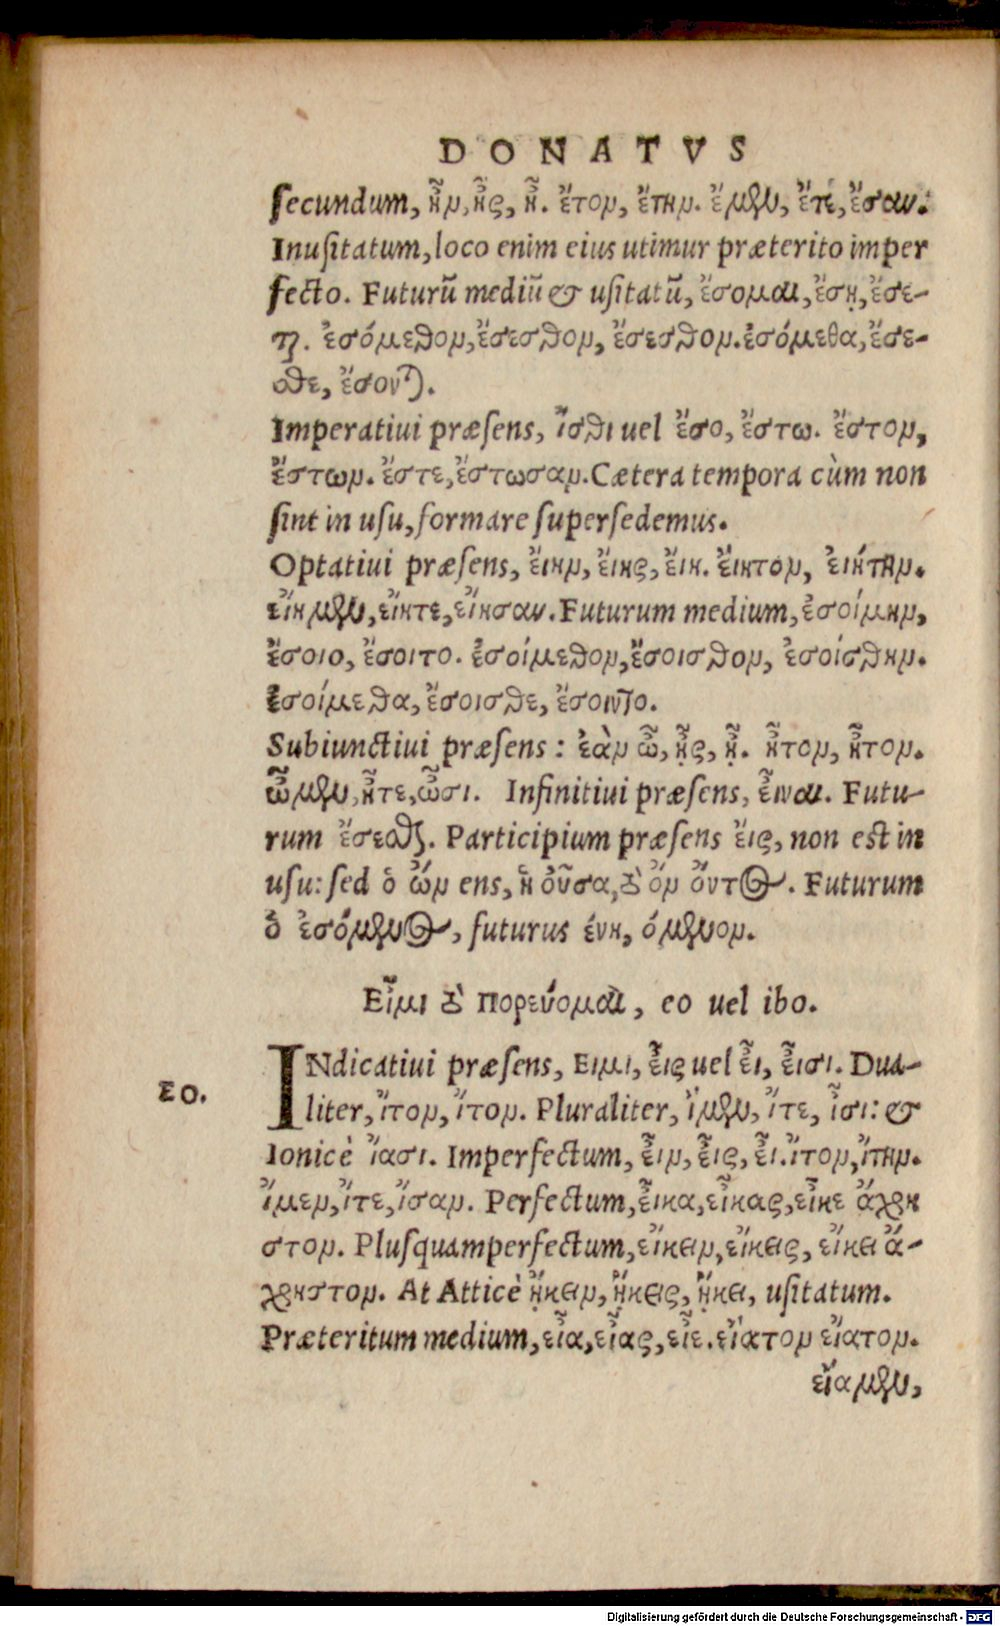 DONATVS
secundum, ἦν, ἦς, ἦ. ἔτον, ἔτην. ἔμεν, ἔτε, ἔσαν.
Inusitatum, loco enim eius utimur præterito imper
fecto. Futurũ mediũ & usitatũ, ἔσομαι, ἔσῃ, ἔσε-
ται. ἐσόμεθον, ἔσεσθον, ἔσεσθον. ἐσόμεθα, ἔσε-
σθε, ἔσονται.
Imperatiui præsens, ἴσθι uel ἔσο, ἔστω. ἔστον,
ἔστων. ἔστε, ἔστωσαν. Cætera tempora cùm non
sint in usu, formare supersedemus.
Optatiui præsens, ἔιην, ἔιης, ἔιη. ἔιητον, ἐιήτην.
εἴημεν, εἴητε, εἴησαν. Futurum medium, ἐσοίμην,
ἔσοιο, ἔσοιτο. ἐσοίμεθον, ἔσοισθον, ἐσοίσθην.
ἐσοίμεθα, ἔσοισθε, ἔσοιντο.
Subiunctiui præsens: ἐὰν ὦ, ᾖς, ᾖ. ἦτον, ἦτον.
ὦμεν, ἦτε, ὦσι. Infinitiui præsens, ἔιναι. Futu-
rum ἔσεσθαι. Participium præsens ἔις, non est in
usu: sed ὁ ὢν ens, ἡ οὖσα, τὸ ὂν ὄντος. Futurum
ὁ ἐσόμενος, futurus ένη, όμενον.
Εἶμι τὸ πορεύομαι, eo uel ibo.
INdicatiui præsens, Ειμι, ἔις uel ἔι, ἔισι. Dua-
EO.
liter, ἴτον, ἴτον. Pluraliter, ἴμεν, ἴτε, ἶσι: &
Ionicè ἴασι. Imperfectum, ἔιν, ἔις, ἔι. ἴτον, ἴτην.
ἴμεν, ἴτε, ἴσαν. Perfectum, ἔικα, εἶκας, εἶκε ἄχρη
στον. Plusquamperfectum, εἴκειν, εἴκεις, εἴκει ἄ-
χρηστον. At Atticè ᾔκειν, ᾔκεις, ᾔκει, usitatum.
Præteritum medium, εἶα, εἶας, εἶε. εἴατον εἴατον.
εἴαμεν,
Digitalisierung gefördert durch die Deutsche Forschungsgemeinschaft - DFG